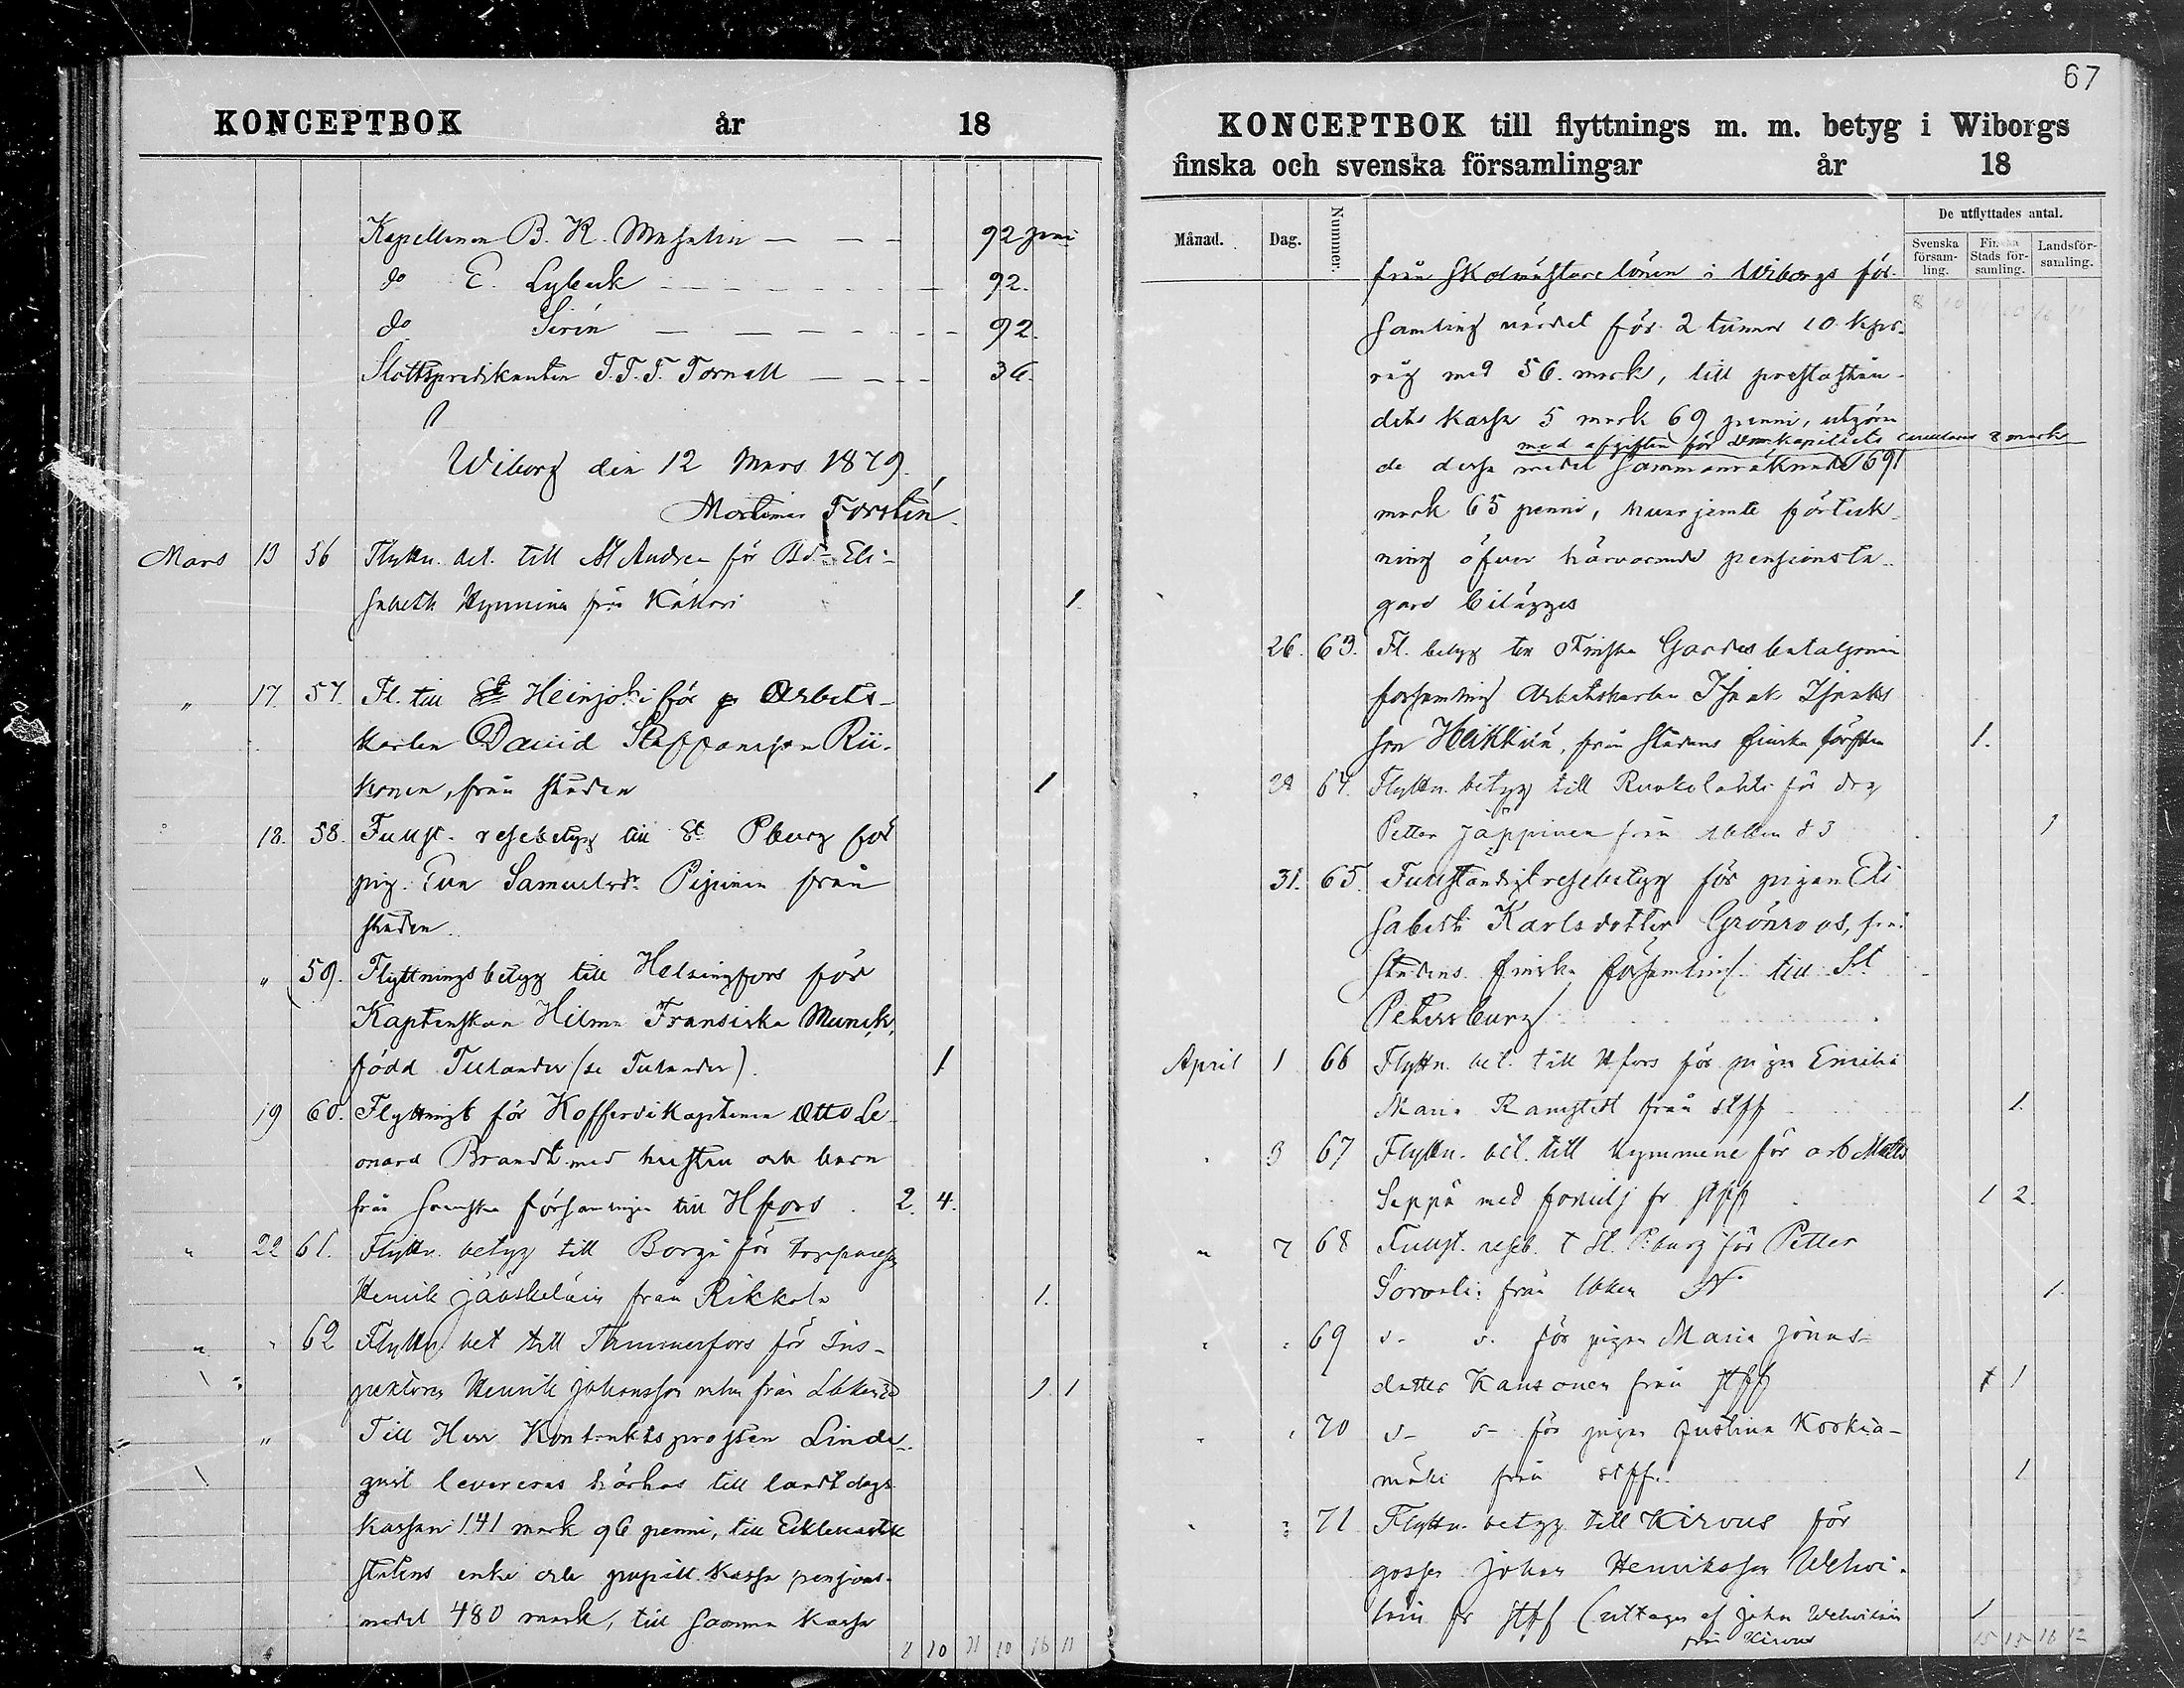 KONCEPTBOK år 18
Kapellanen B. K. — — — 92 penni
do E. Lybeck — — — 92.
do Sirén — — — 92.
Slottspredikanten T.T.T. Tornell — — — 36.
Wiborg den 12 Mars 1879.
Mortimer Forstén.
Mars 13 56 Flyttn. bet. till St Andrea för Bd Eli-
sabeth Kymmin från Kakkori 1.
" 17. 57. Fl. till Heinjoki för Arbets-
karlen David Staffansson Rii-
konen, från staden 1
18. 58. Fullst. resebetyg till St Pburg för
pig. Eva Samuelsdr Pipinen från
staden.
" 59. Flyttningsbetyg till Helsingfors för
Kaptenskan Hilma Fransiska Munck,
född Tulander (se Tulander). 1
19 60. Flyttningsb för Kofferdikaptenen Otto Le-
onard Brandt med hustru och barn
från svenska församlingen till Hfors. 2. 4.
" 22 61. Flyttn. betyg till Borgå för
Henrik Jääskeläin från Rikkola 1.
" " 62 Flyttn. bet till Tammerfors för Ins-
pektoren Henrik Johansson från 1 1
" Till Herr Kontraktsprosten Linde-
qvist levereras härhos till landtdags
kassan 141 mark 96 penni, till Ecklesiastik
statens enke och pupill kassa pensions-
medel 480 mark, till samma kassa
2 10 11 10 16 11
67
KONCEPTBOK till flyttnings m. m. betyg i Wiborgs
finska och svenska församlingar år 18
Månad. Dag. Nummer. De utflyttades antal.
Svenska församling. Finska Stads församling. Landsförsamling.
från Skolmästarelönen i Wiborgs för-
samling värdet för 2 tunnor 10 kpr
råg med 56. mark, till prestastån-
dets kassa 5 mark 69 penni, utgöran
med afgiften för Domkapitlets cirkulärer 8 mark
de dessa medel sammanräknade 691
mark 65 penni, hvarjemte förteck-
ning öfver härvarande pensionsta-
gare bilägges
26. 63. Fl. betyg till Finska Gardes bataljonen
församling Arbetskarlen Isak Isaks
son Heikkinen, från stadens finska förs 1.
28 64. Flyttn. betyg till Ruokolahti för drg
Petter Jäppinen från 1
31. 65. Fullständigt resebetyg för pigan Eli
sabeth Karlsdotter Grönroos, från
stadens finska församling till St
Petersburg
April 1 66 Flyttn. bet. till Hfors för pigan Emilia
Maria Ramstedt från stff 1.
3 67 Flyttn. bet. till Kymmene för arb Matts
Seppä med familj fr stff 1 2.
" 7 68 Fullst. reseb. t St. P:burg för Petter
Sorvali från 1.
" " 69 d- d- för pigan Maria Jönas-
dotter Kansonen från stff 1
" " 70 d- d- för pigan Justina Koskia-
mäki från stff. 1
" " 71 Flyttn. betyg till Kirvus för
gossen Johan Henriksson Wehvi-
läin fr stff (uttages af Johan Wehviläin 1
från Kirvus
15 15 16 12